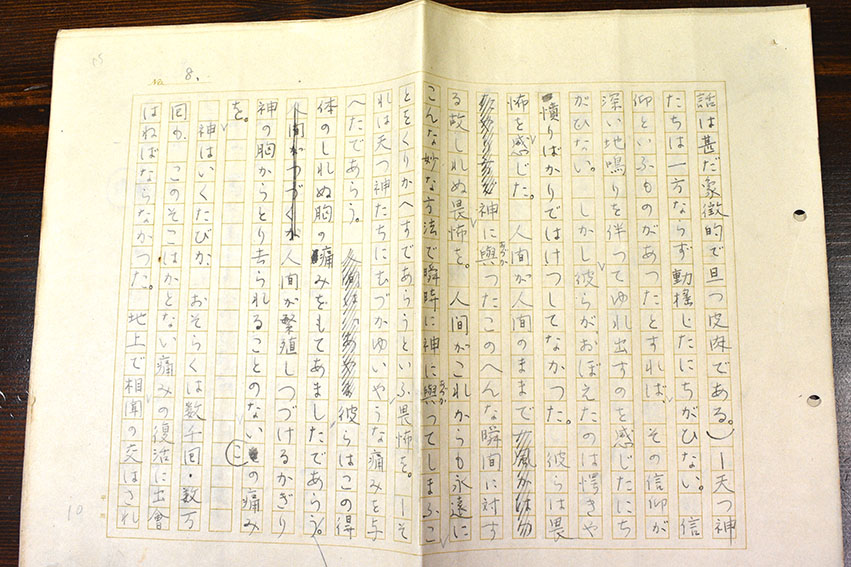 15
8.
話は甚だ象徴的で且つ皮肉である。）―天つ神
たちは一方ならず動揺したにちがひない。信
仰といふものがあつたとすれば、その信仰が
深い地鳴りを伴つてゆれ出すのを感じたにち
がひない。しかし彼らがおぼえたのは愕きや
憤りばかりではけつしてなかつた。彼らは畏
怖を感じた。人間が人間のままで
神に與つたこのへんな瞬間に対す
あづか
る故しれぬ畏怖を。人間がこれからも永遠に
こんな妙な方法で瞬時に神に與つてしまふこ
あづか
とをくりかへすであらうといふ畏怖を。―そ
れは天つ神たちにむづかゆいやうな痛みを与
へたであらう。彼らはこの得
体のしれぬ胸の痛みをもてあましたであらう。
人間がつづくか人間が繁殖しつづけるかぎり
神の胸からとり去られることのないこの痛み
を。
神はいくたびか、おそらくは数千回・数万
回か、このそこはかとない痛みの復活に出會
はねばならなかつた。地上で相聞の交はされ
10